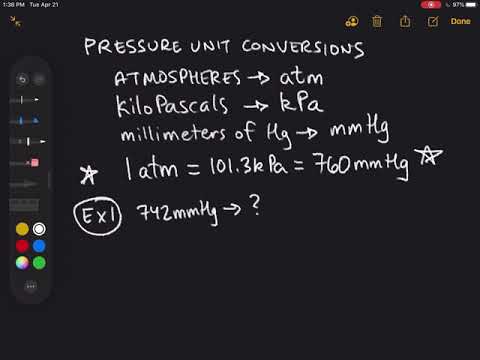 1:36 PM Tue Apr 21
97%
Done
PRESSURE UNIT CONVERSIONS
ATMOSPHERES → atm
KiloPascals → kPa
millimeters of Hg → mmHg
☆ 1 atm = 101.3 kPa = 760 mmHg ☆
Ex1 742 mmHg → ?